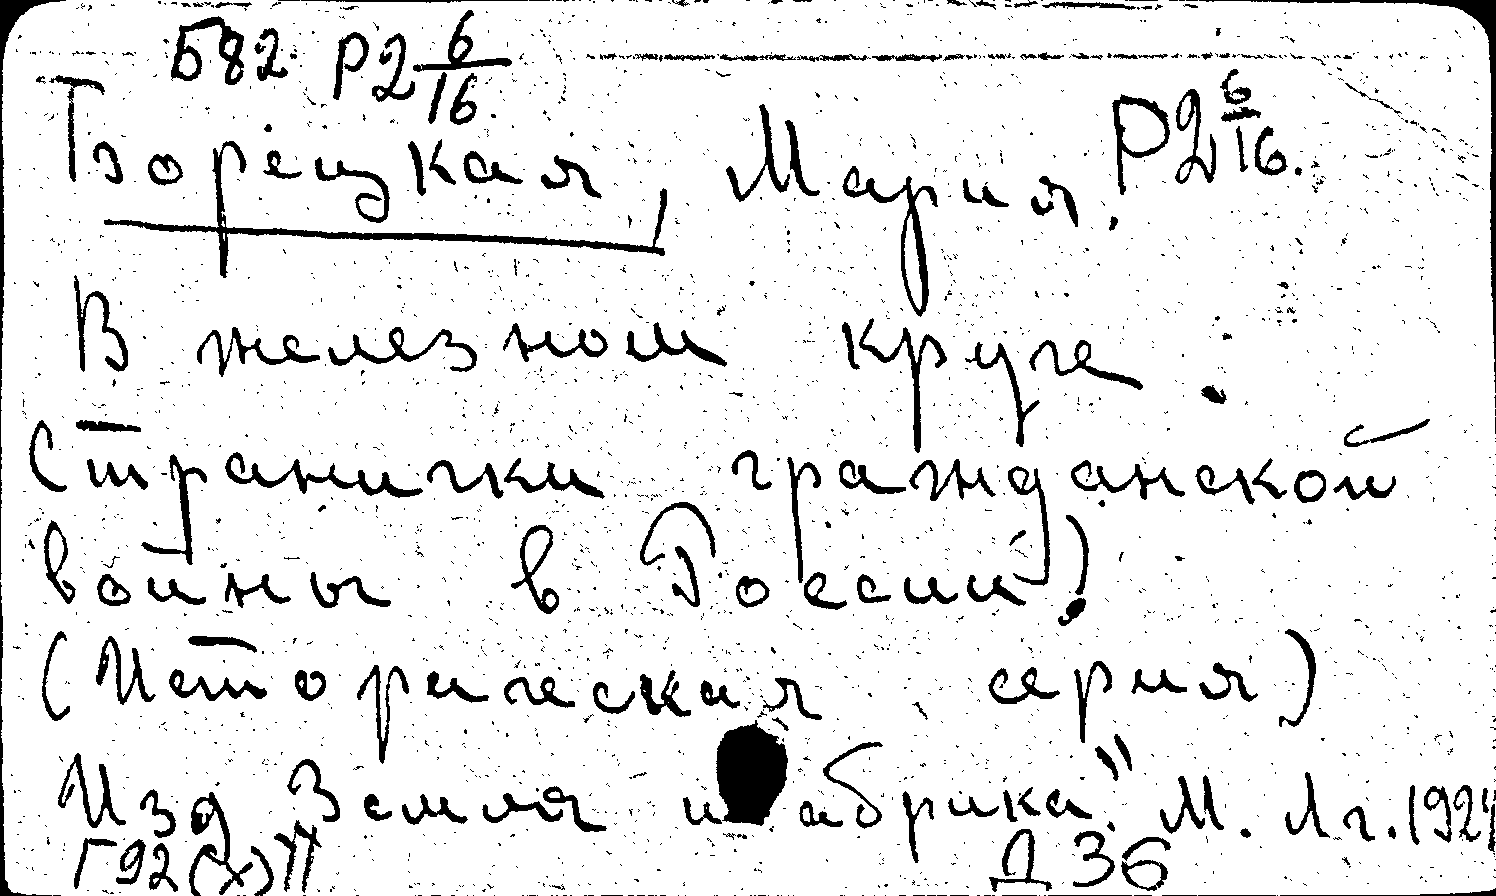 Б82 Р2 6/16
Борецкая, Мария. Р2 6/16.
В железном круге.
(Странички гражданской
войны в России).
(Историческая серия)
Изд Земля и абрика" М. Лг. 1924
Г92(х)11 Д 36